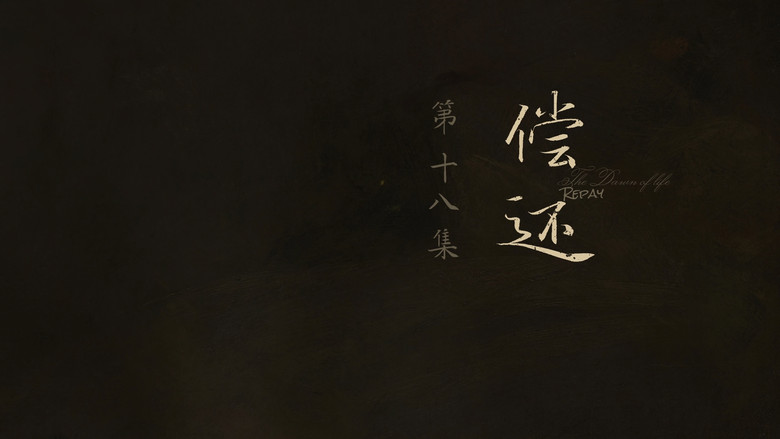 偿还
The Dawn of life
REPAY
第十八集